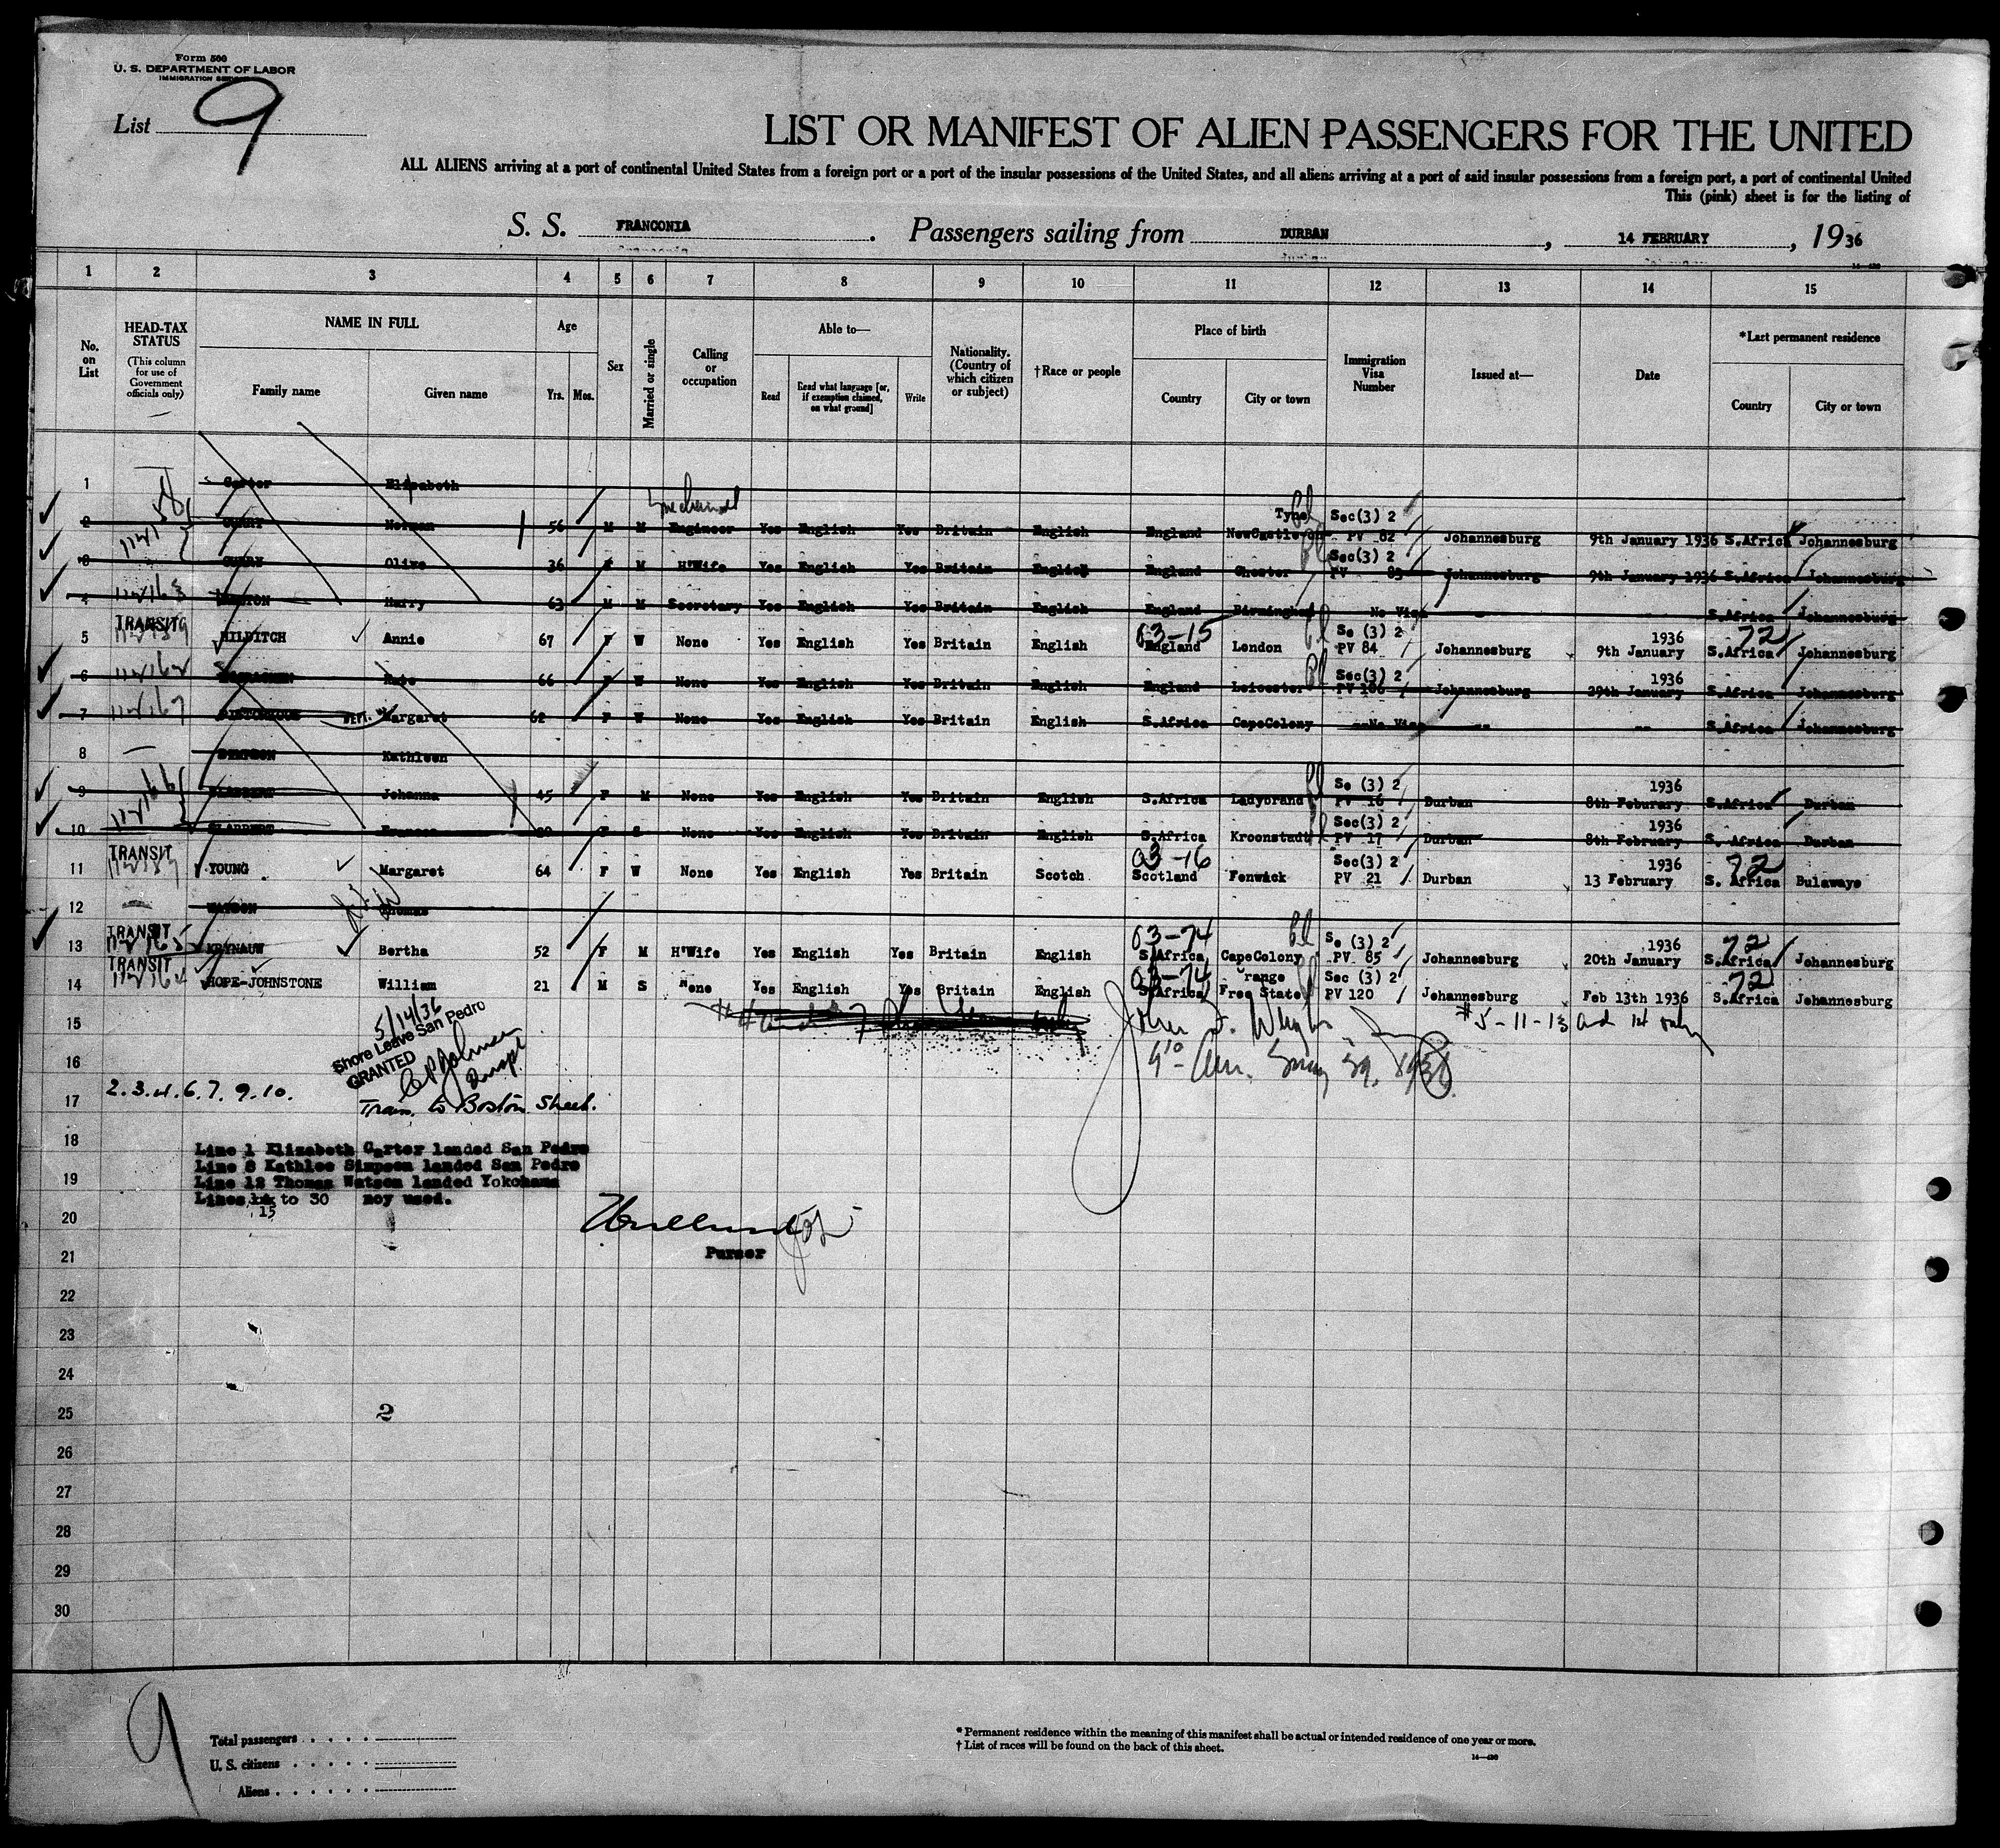 Form 500
U. S. DEPARTMENT OF LABOR
IMMIGRATION
List 9
LIST OR MANIFEST OF ALIEN PASSENGERS FOR THE UNITED
ALL ALIENS arriving at a port of continental United States from a foreign port or a port of the insular possessions of the United States, and all aliens arriving at a port of said insular possessions from a foreign port, a port of continental United
This (pink) sheet is for the listing of
S. S. FRANCONIA. Passengers sailing from DURBAN, 14 FEBRUARY, 1936
1 2 3 4 5 6 7 8 9 10 11 12 13 14 15
No. on List
HEAD-TAX STATUS (This column for use of Government officials only)
NAME IN FULL Family name Given name
Age Yrs. Mos.
Sex
Married or single
Calling or occupation
Able to— Read Read what language [or, if exemption claimed, on what ground] Write
Nationality. (Country of which citizen or subject)
†Race or people
Place of birth Country City or town
Immigration Visa Number
Issued at—
Date
*Last permanent residence Country City or town
1 Carter Elizabeth
2 Norman 56 M M Engineer Yes English Yes Britain English England NewCastle Sec(3) 2 PV 82 Johannesburg 9th January 1936 S.Africa Johannesburg
3 Olive 36 F M H'Wife Yes English Yes Britain English England Chester Sec(3) 2 PV 83 Johannesburg 9th January 1936 S.Africa Johannesburg
4 Harry 63 M M Secretary Yes English Yes Britain English England Birmingham No Visa S.Africa Johannesburg
5 TRANSIT HILDITCH Annie 67 F W None Yes English Yes Britain English 03-15 England London Se (3) 2 PV 84 Johannesburg 1936 9th January 72 S.Africa Johannesburg
6 Kate 66 F W None Yes English Yes Britain English England Leicester Sec(3) 2 PV 106 Johannesburg 1936 29th January S.Africa Johannesburg
7 Margaret 62 F W None Yes English Yes Britain English S.Africa CapeColony --No Visa -- -- S.Africa Johannesburg
8 Kathleen
9 Johanna 45 F M None Yes English Yes Britain English S.Africa Ladybrand Se (3) 2 PV 16 Durban 1936 8th Feburary S.Africa Durban
10 F S None Yes English Yes Britain English S.Africa Kroonstadt Sec(3) 2 PV 17 Durban 1936 8th February S. Africa Durban
11 TRANSIT YOUNG Margaret 64 F W None Yes English Yes Britain Scotch 03-16 Scotland Fenwick Sec(3) 2 PV 21 Durban 1936 13 February 72 S. Africa Bulawayo
12 WATSON Thomas
13 TRANSIT KRYNAUW Bertha 52 F M H'Wife Yes English Yes Britain English 03-74 S.Africa CapeColony Se (3) 2 PV. 85 Johannesburg 1936 20th January 72 S.Africa Johannesburg
14 TRANSIT HOPE-JOHNSTONE William 21 M S None Yes English Yes Britain English 03-74 S.Africa range Free State Sec (3) 2 PV 120 Johannesburg Feb 13th 1936 72 S.Africa Johannesburg
15 #5-11-13 and 14 only
5/14/36
Shore Leave San Pedro
GRANTED
16
2.3.4.6.7.9.10.
Tran. to Boston Sheet.
17
18
Line 1 Elizabeth Carter landed San Pedro
Line 8 Kathlee Simpson landed San Pedro
19
Line 12 Thomas Watson landed Yokohama
Lines 15 to 30 noy used.
20
Purser
21
22
23
24
25 2
26
27
28
29
30
9
Total passengers
U. S. citizens
Aliens
* Permanent residence within the meaning of this manifest shall be actual or intended residence of one year or more.
† List of races will be found on the back of this sheet.